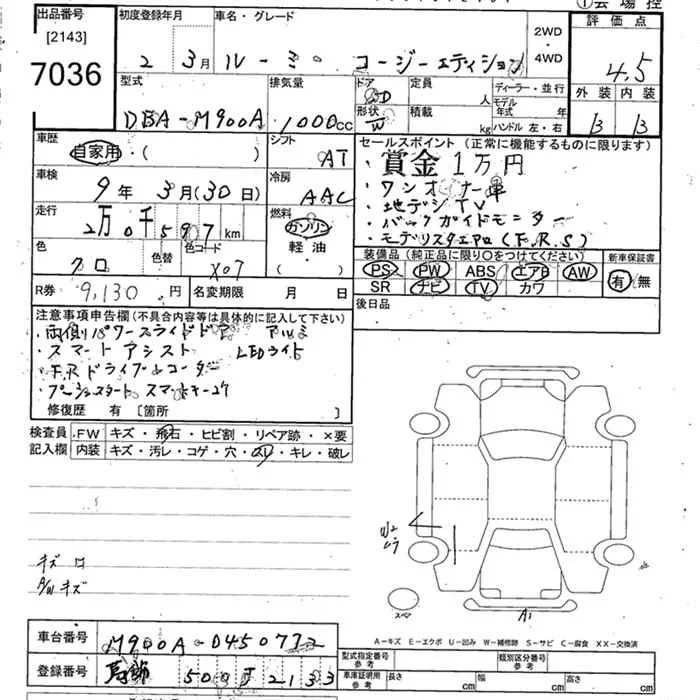 出品番号
[2143]
7036
初度登録年月
車名・グレード
2 3月 ルーミー コージーエディション
2WD
・
4WD
評価点
4.5
外装 内装
B B
型式
DBA-M900A
排気量
1000cc
ドア
5D
形状
W
定員
人
積載
kg
ディーラー・並行
モデル
年式 年
ハンドル 左・右
車歴
自家用・( )
シフト
AT
車検
9年 3月(30日)
冷房
AAC
走行
2万0千597km
燃料
ガソリン
軽油・
( )
色
クロ
色替
色コード
X07
R券 9,130円
名変期限 月 日
セールスポイント(正常に機能するものに限ります)
・賞金1万円
・ワンオーナー車
・地デジTV
・バックガイドモニター
・モデリスタエアロ(F.R.S)
装備品(純正品に限り〇をつけてください)
PS PW ABS エアB AW
SR ナビ TV カワ
新車保証書
有・無
後日品
注意事項申告欄(不具合内容等は具体的に記入して下さい)
・両側パワースライドドア アルミ
・スマートアシスト LEDライト
・F.Rドライブレコーダー
・プッシュスタート スマートキー2ケ
修復歴 有 [箇所 ]
検査員
記入欄
FW キズ・飛石・ヒビ割・リペア跡・×要
内装 キズ・汚レ・コゲ・穴・スレ・キレ・破レ
キズ
キズ
スペア
A1
A-キズ E-エクボ U-凹み W-補修跡 S-サビ C-腐食 XX-交換済
車台番号 M900A-0450772
登録番号 葛飾 500 2133
型式指定番号
参考
類別区分番号
参考
車庫証明用
参考
長さ cm
幅 cm
高さ cm